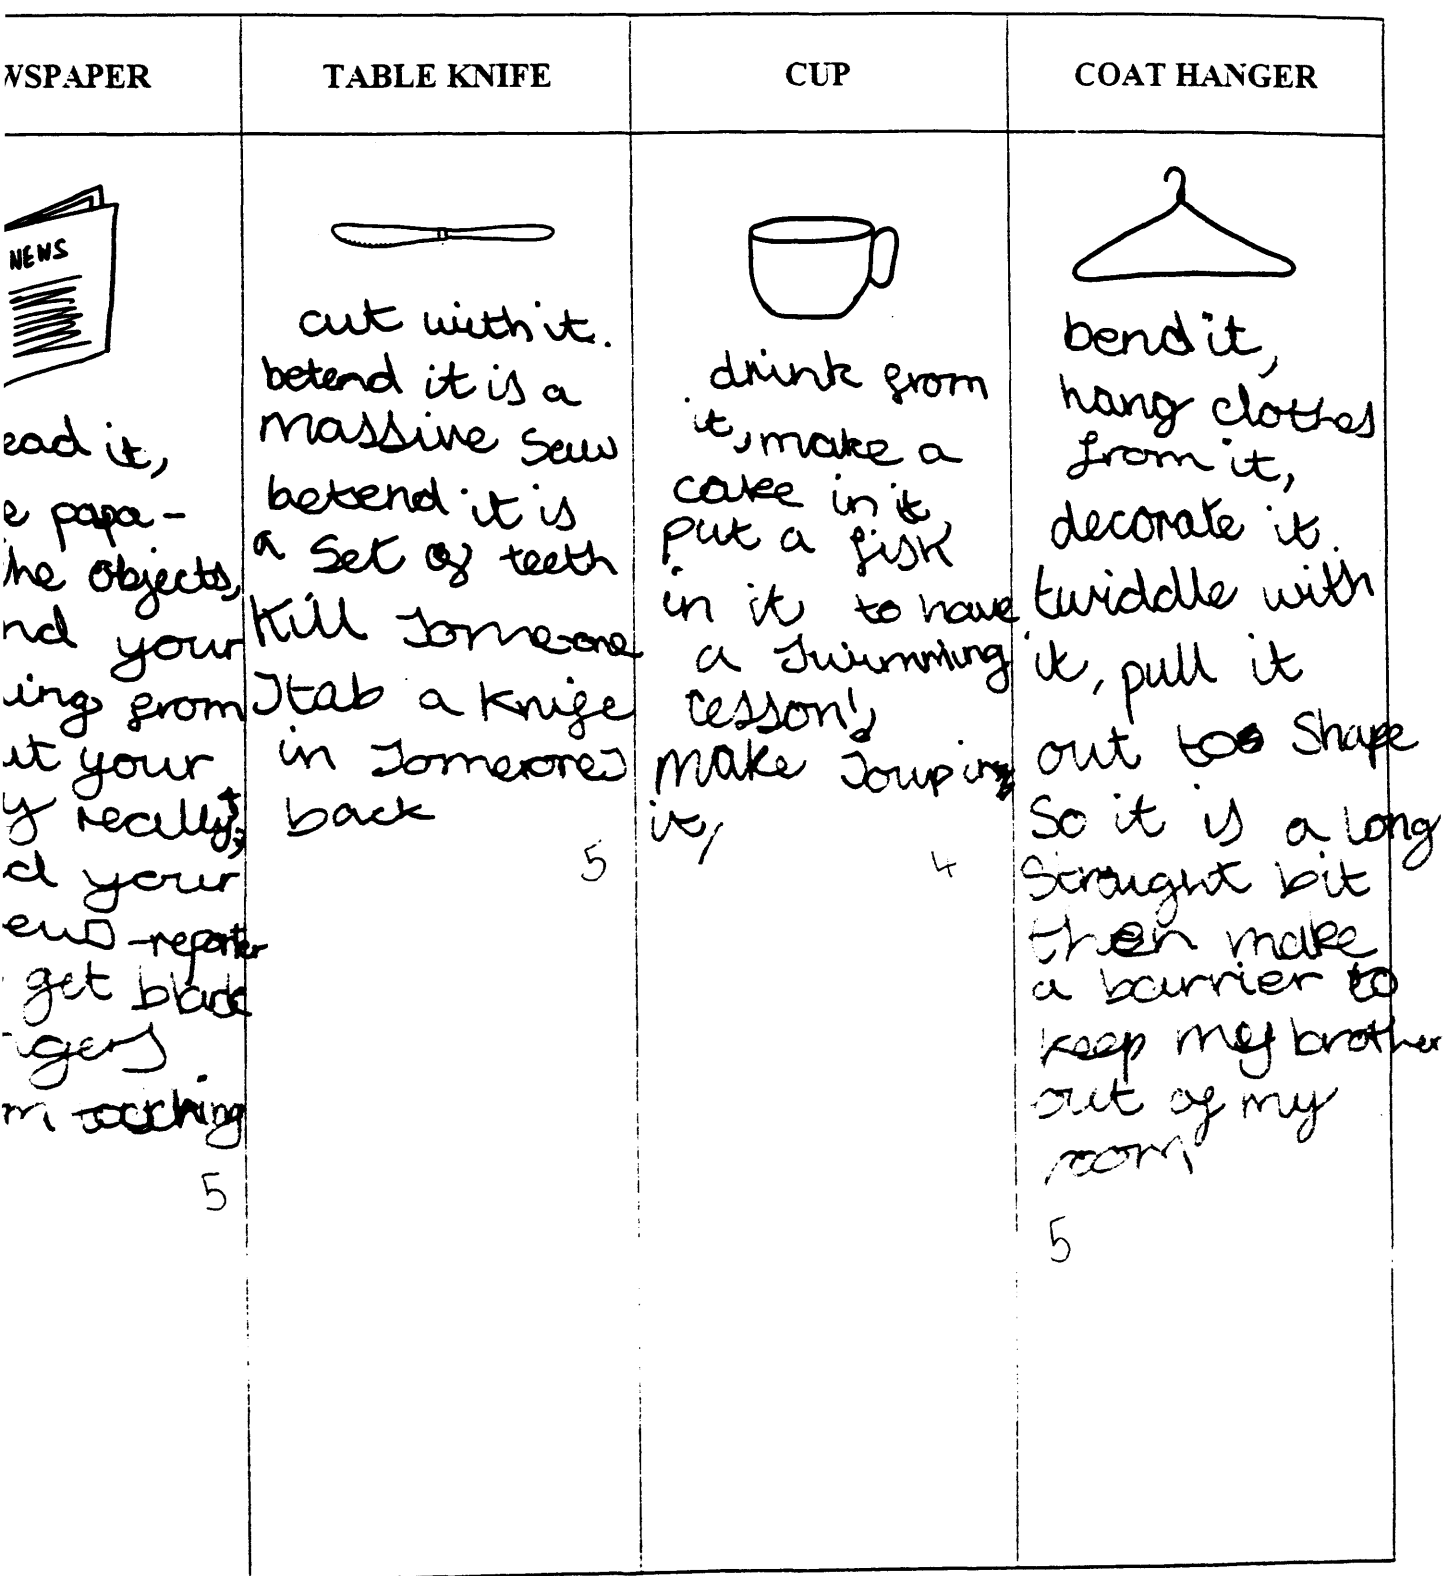 WSPAPER
NEWS
ead it,
e papa-
he objects,
nd your
ing from
ut your
y really,
d your
ews-reporter
get black
ngers
m touching
5
TABLE KNIFE
cut with it.
betend it is a
massive saw
betend it is
a set of teeth
Kill someone
stab a knife
in someones
back
5
CUP
drink from
it, make a
cake in it,
put a fish
in it to have
a swimming
lesson!,
make soup in
it,
4
COAT HANGER
bend it,
hang clothes
from it,
decorate it.
twiddle with
it, pull it
out of shape
So it is a long
straight bit
then make
a barrier to
keep my brother
out of my
room
5